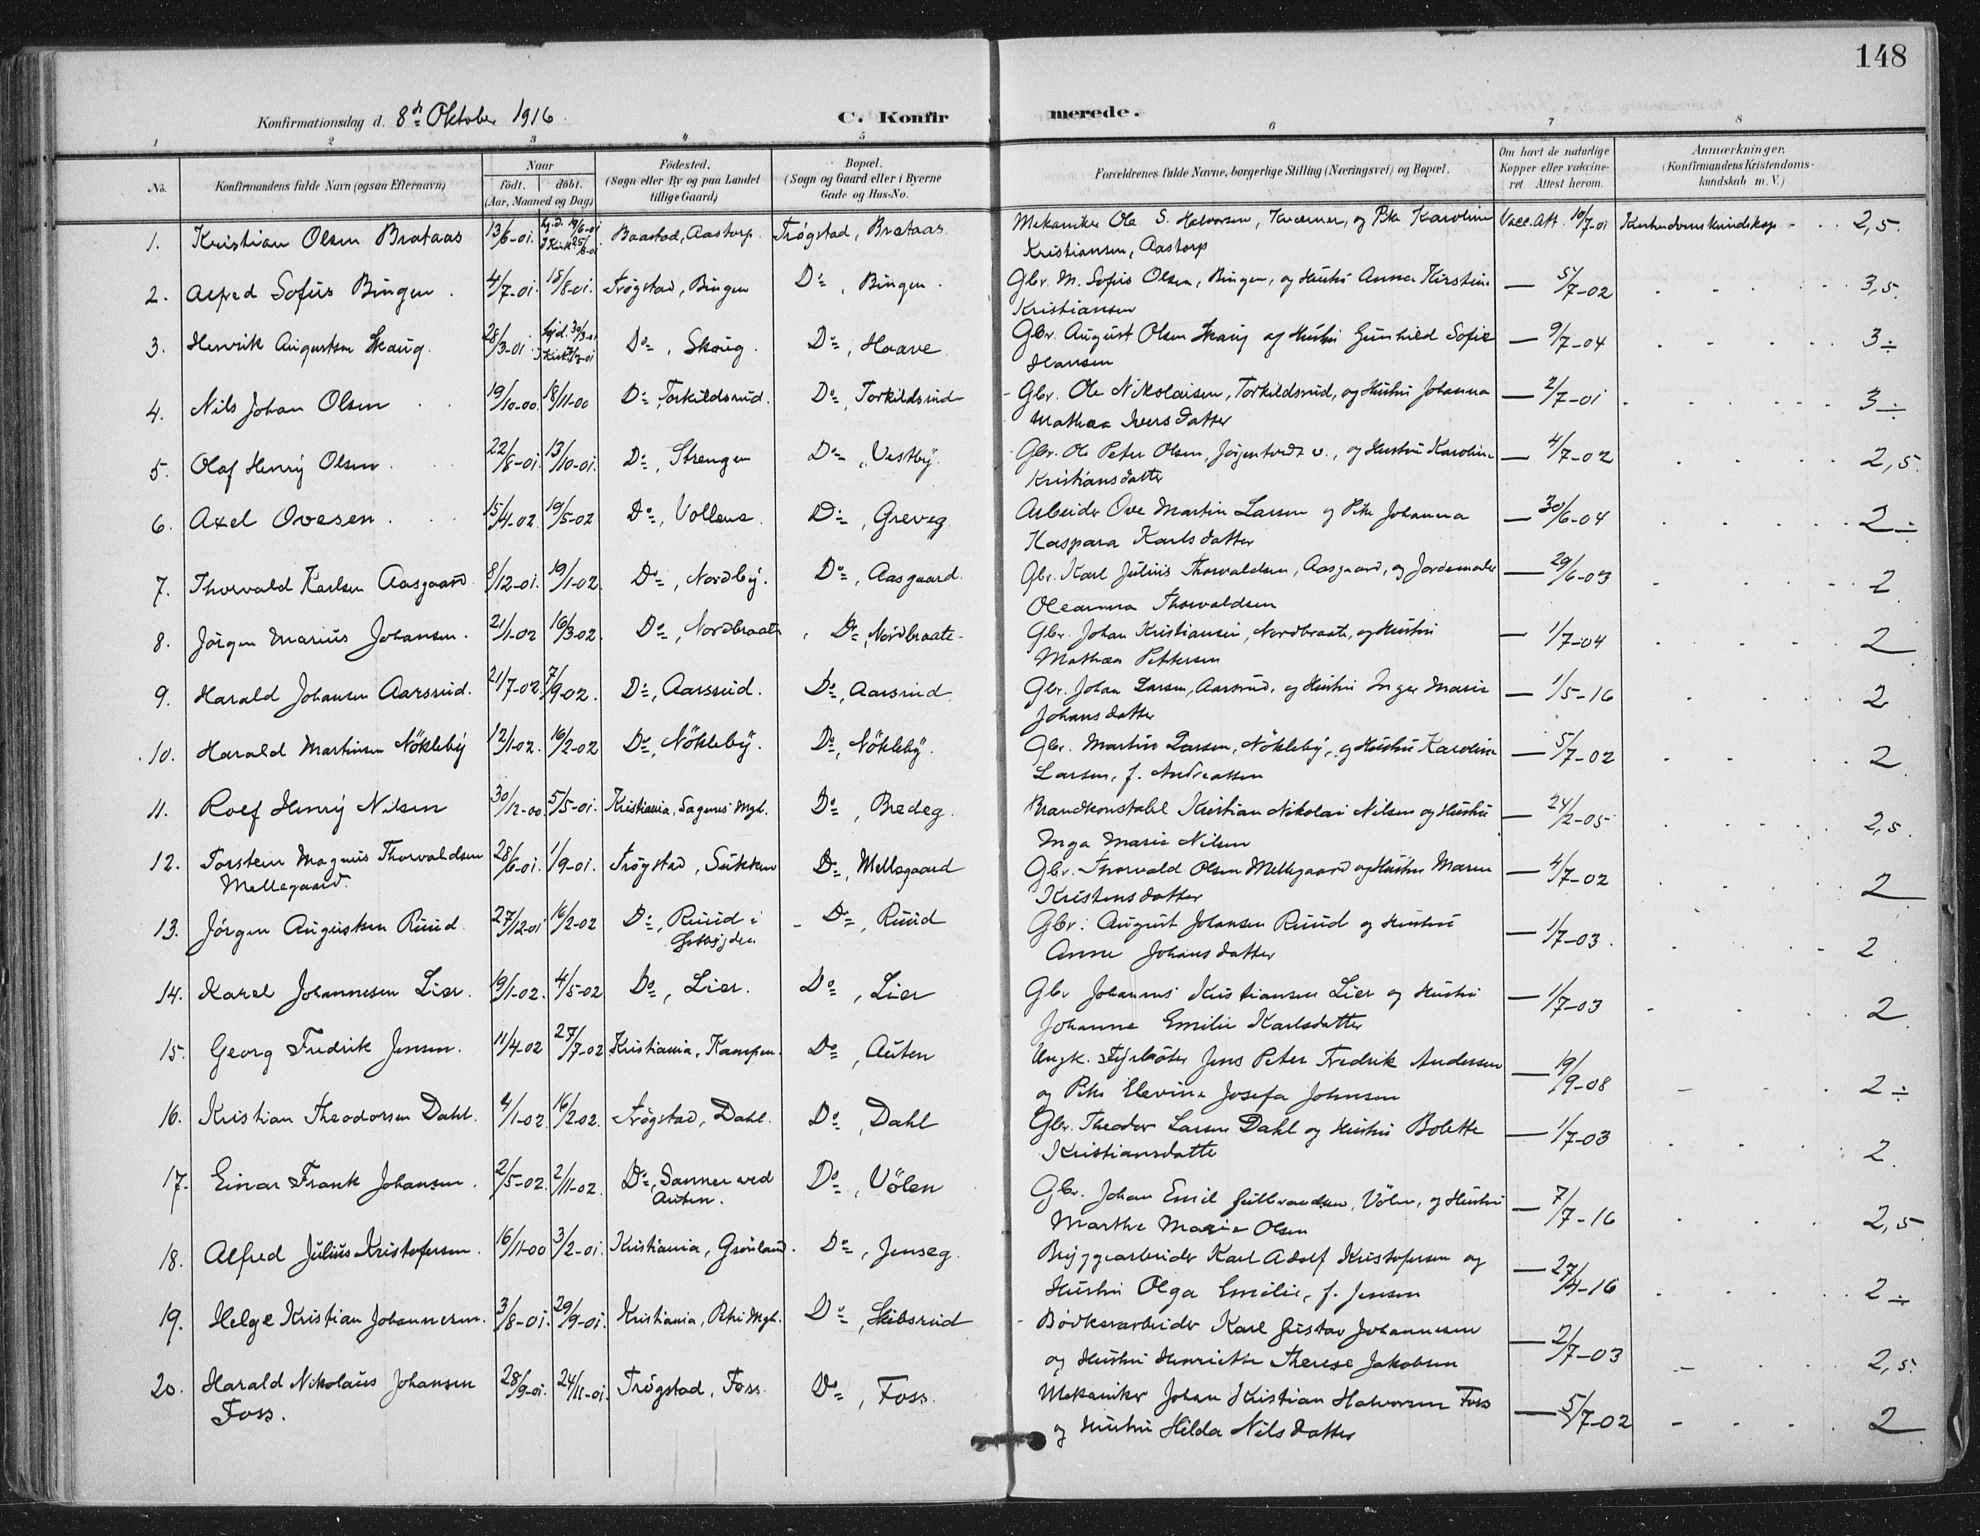 148
Konfirmationsdag d. 8de Oktober 1916.
C. Konfirmerede.
1 2 3 4 5 6 7 8
No. Konfirmandens fulde Navn (ogsaa Efternavn) Naar født. døbt. (Aar, Maaned og Dag) Fødested. (Sogn eller By og paa Landet tillige Gaard) Bopæl. (Sogn og Gaard eller i Byerne Gade og Hus-No. Forældrenes fulde Navne, borgerlige Stilling (Næringsvei) og Bopæl. Om havt de naturlige Kopper eller vakcineret. Attest herom. Anmærkninger. (Konfirmandens Kristendomskundskab m. V.)
1. Kristian Olsen Brataas 13/6-01. hj.d. 19/6-01 Baastad, Aastorp. Trøgstad, Brataas. Mekaniker Ole S. Halvorsen, Kværner, og Pike Karoline Vacc. Att. 10/7-01 Kristendomskundskap - . . 2,5.
Kristiansen, Aastorp
2. Alfred Sofus Bingen. 4/7-01. 18/8-01. Trøgstad, Bingen Do, Bingen. Gbr. M. Sofus Olsen, Bingen, og Hustru Anna Kirstine — 5/7-02 3,5.
Kristiansen
3. Henrik Augustsen Skaug. 28/3-01 hjd. 30/3-01 Do, Skaug. Do, Haave. Gbr. August Olsen Skaug og Hustru Gunhild Sofie — 9/7-04 3 ÷
Hansen
4. Nils Johan Olsen 19/10-00. 18/11-00 Do, Torkildsrud. Do, Torkildsrud Gbr. Ole Nikolaisen, Torkildsrud, og Hustru Johanna — 2/7-01 3 ÷
Mathea Iversdatter
5. Olaf Henry Olsen 22/8-01. 13/10-01. Do, Strengen Do, Vestby. Gbr. Ole Peter Olsen, og Hustru Karoline — 4/7-02 2,5.
Kristiansdatter
6. Axel Ovesen 15/4-02 19/5-02 Do, Vollene. Do, Greveg Arbeider Ove Martin Larsen og Pike Johanna — 30/6-04 2 ÷
Kaspara Karlsdatter
7. Thorvald Karlsen Aasgaard 8/12-01. 19/1-02. Do, Nordby. Do, Aasgaard. Gbr. Karl Julius Thorvaldsen, Aasgaard, og Jordemoder — 29/6-03 2
Oleanna Thorvaldsen
8. Jørgen Marius Johansen. 21/1-02 16/3-02. Do, Nordbraate Do, Nordbraate. Gbr. Johan Kristiansen, Nordbraate, og Hustru — 1/7-04 2
Mathea Pettersen
9. Harald Johansen Aarsrud. 21/7-02. 7/9-02. Do, Aarsrud. Do, Aarsrud Gbr. Johan Larsen, Aarsrud, og Hustru Inger Marie — 1/5-16 2
Johansdatter
10. Harald Martinsen Nökleby 12/1-02. 16/2-02 Do, Nökleby. Do, Nökleby. Gbr. Martin Larsen, Nökleby, og Hustru Karoline — 5/7-02 2
Larsen, f. Andreassen
11. Rolf Henry Nilsen 30/12-00. 5/5-01. Kristiania, Sagenes Mgh. Do, Bredeg. Brandkonstabel Kristian Nikolai Nilsen og Hustru — 24/2-05 2,5.
Inga Marie Nilsen
12. Torstein Magnus Thorvaldsen 28/6-01. 1/9-01. Trøgstad, Sukken Do, Mellegaard Gbr. Thorvald Olsen Mellegaard og Hustru Maren — 4/7-02 2
Mellegaard. Kristensdatter
13. Jørgen Augustsen Ruud. 27/12-01 16/2-02 Do, Ruud i Do, Ruud Gbr. August Johansen Ruud og Hustru — 1/7-03. 2.
Anne Johansdatter
14. Karel Johannesen Lier. 19/1-02. 4/5-02 Do, Lier. Do, Lier Gbr Johannes Kristiansen Lier og Hustru — 1/7-03 2.
Johanne Emilie Karlsdatter
15. Georg Fredrik Jensen. 11/4-02 27/7-02 Kristiania, Kampen. Do, Auten Ungk. Fyrbøter Jens Peter Fredrik Andersen — 19/9-08 2 ÷
og Pike Elevine Josefa Johnsen
16. Kristian Theodorsen Dahl. 4/1-02 16/2-02. Trøgstad, Dahl. Do, Dahl Gbr. Theodor Larsen Dahl og Hustru Bolette — 1/7-03 2.
Kristiansdatter
17. Einar Frank Johansen. 2/5-02. 2/11-02. Do, Sanner ved Do, Völen Gbr. Johan Emil Gulbrandsen, Völen, og Hustru — 7/7-16 2,5.
Auten. Marthe Marie Olsen
18. Alfred Julius Kristofersen. 16/11-00 3/2-01. Kristiania, Grønland. Do, Jenseg. Bryggearbeider Karl Adolf Kristofersen og — 27/4-16 2 ÷
Hustru Olga Emilie, f. Jensen
19. Helge Kristian Johannesen. 3/8-01. 29/9-01. Kristiania, Mgh. Do, Skibsrud Bødkerarbeider Karl Gustav Johannesen — 2/7-03 2,5.
og Hustru Henriette Therese Jakobsen
20. Harald Nikolaus Johansen 28/9-01. 24/11-01. Trøgstad, Foss. Do, Foss. Mekaniker Johan Kristian Halvorsen Foss — 5/7-02 2
Foss. og Hustru Hilda Nilsdatter